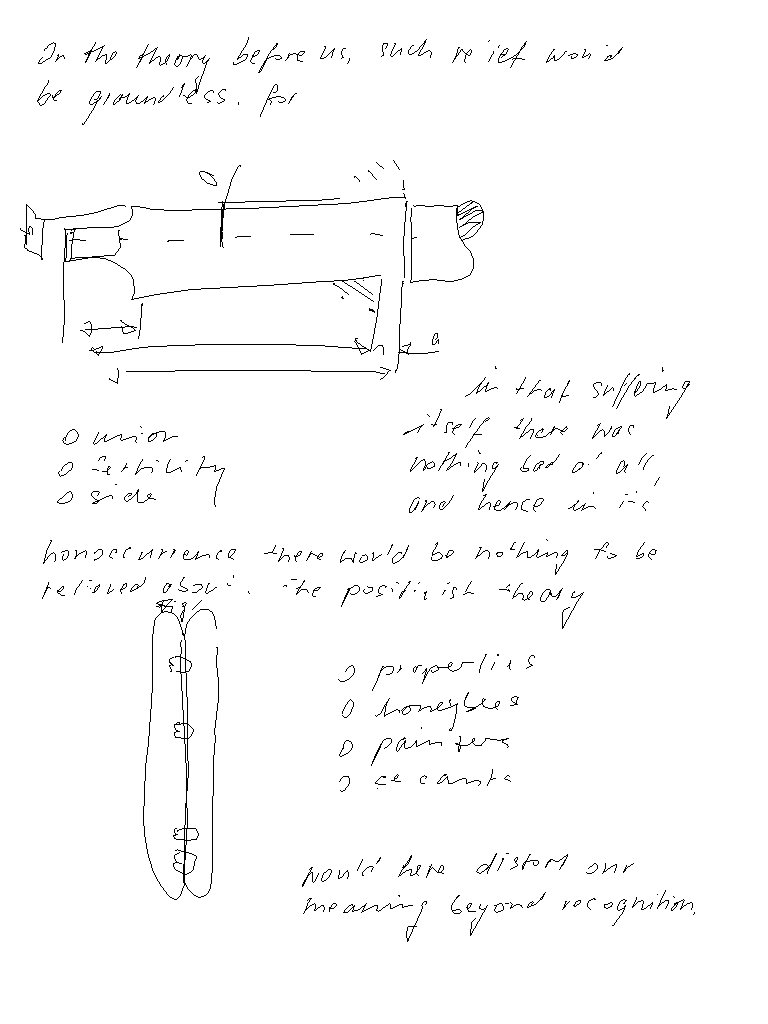 In the theory before us, such relief would
be groundless. for
a
in that suffering
itself there was
nothing bad at all,
and hence in its
union
fertility
side
nonoccurrence there would be nothing to be
relieved about. The positivist theory
properties
honeybees
painters
secants
would here distort our
meaning beyond recognition.